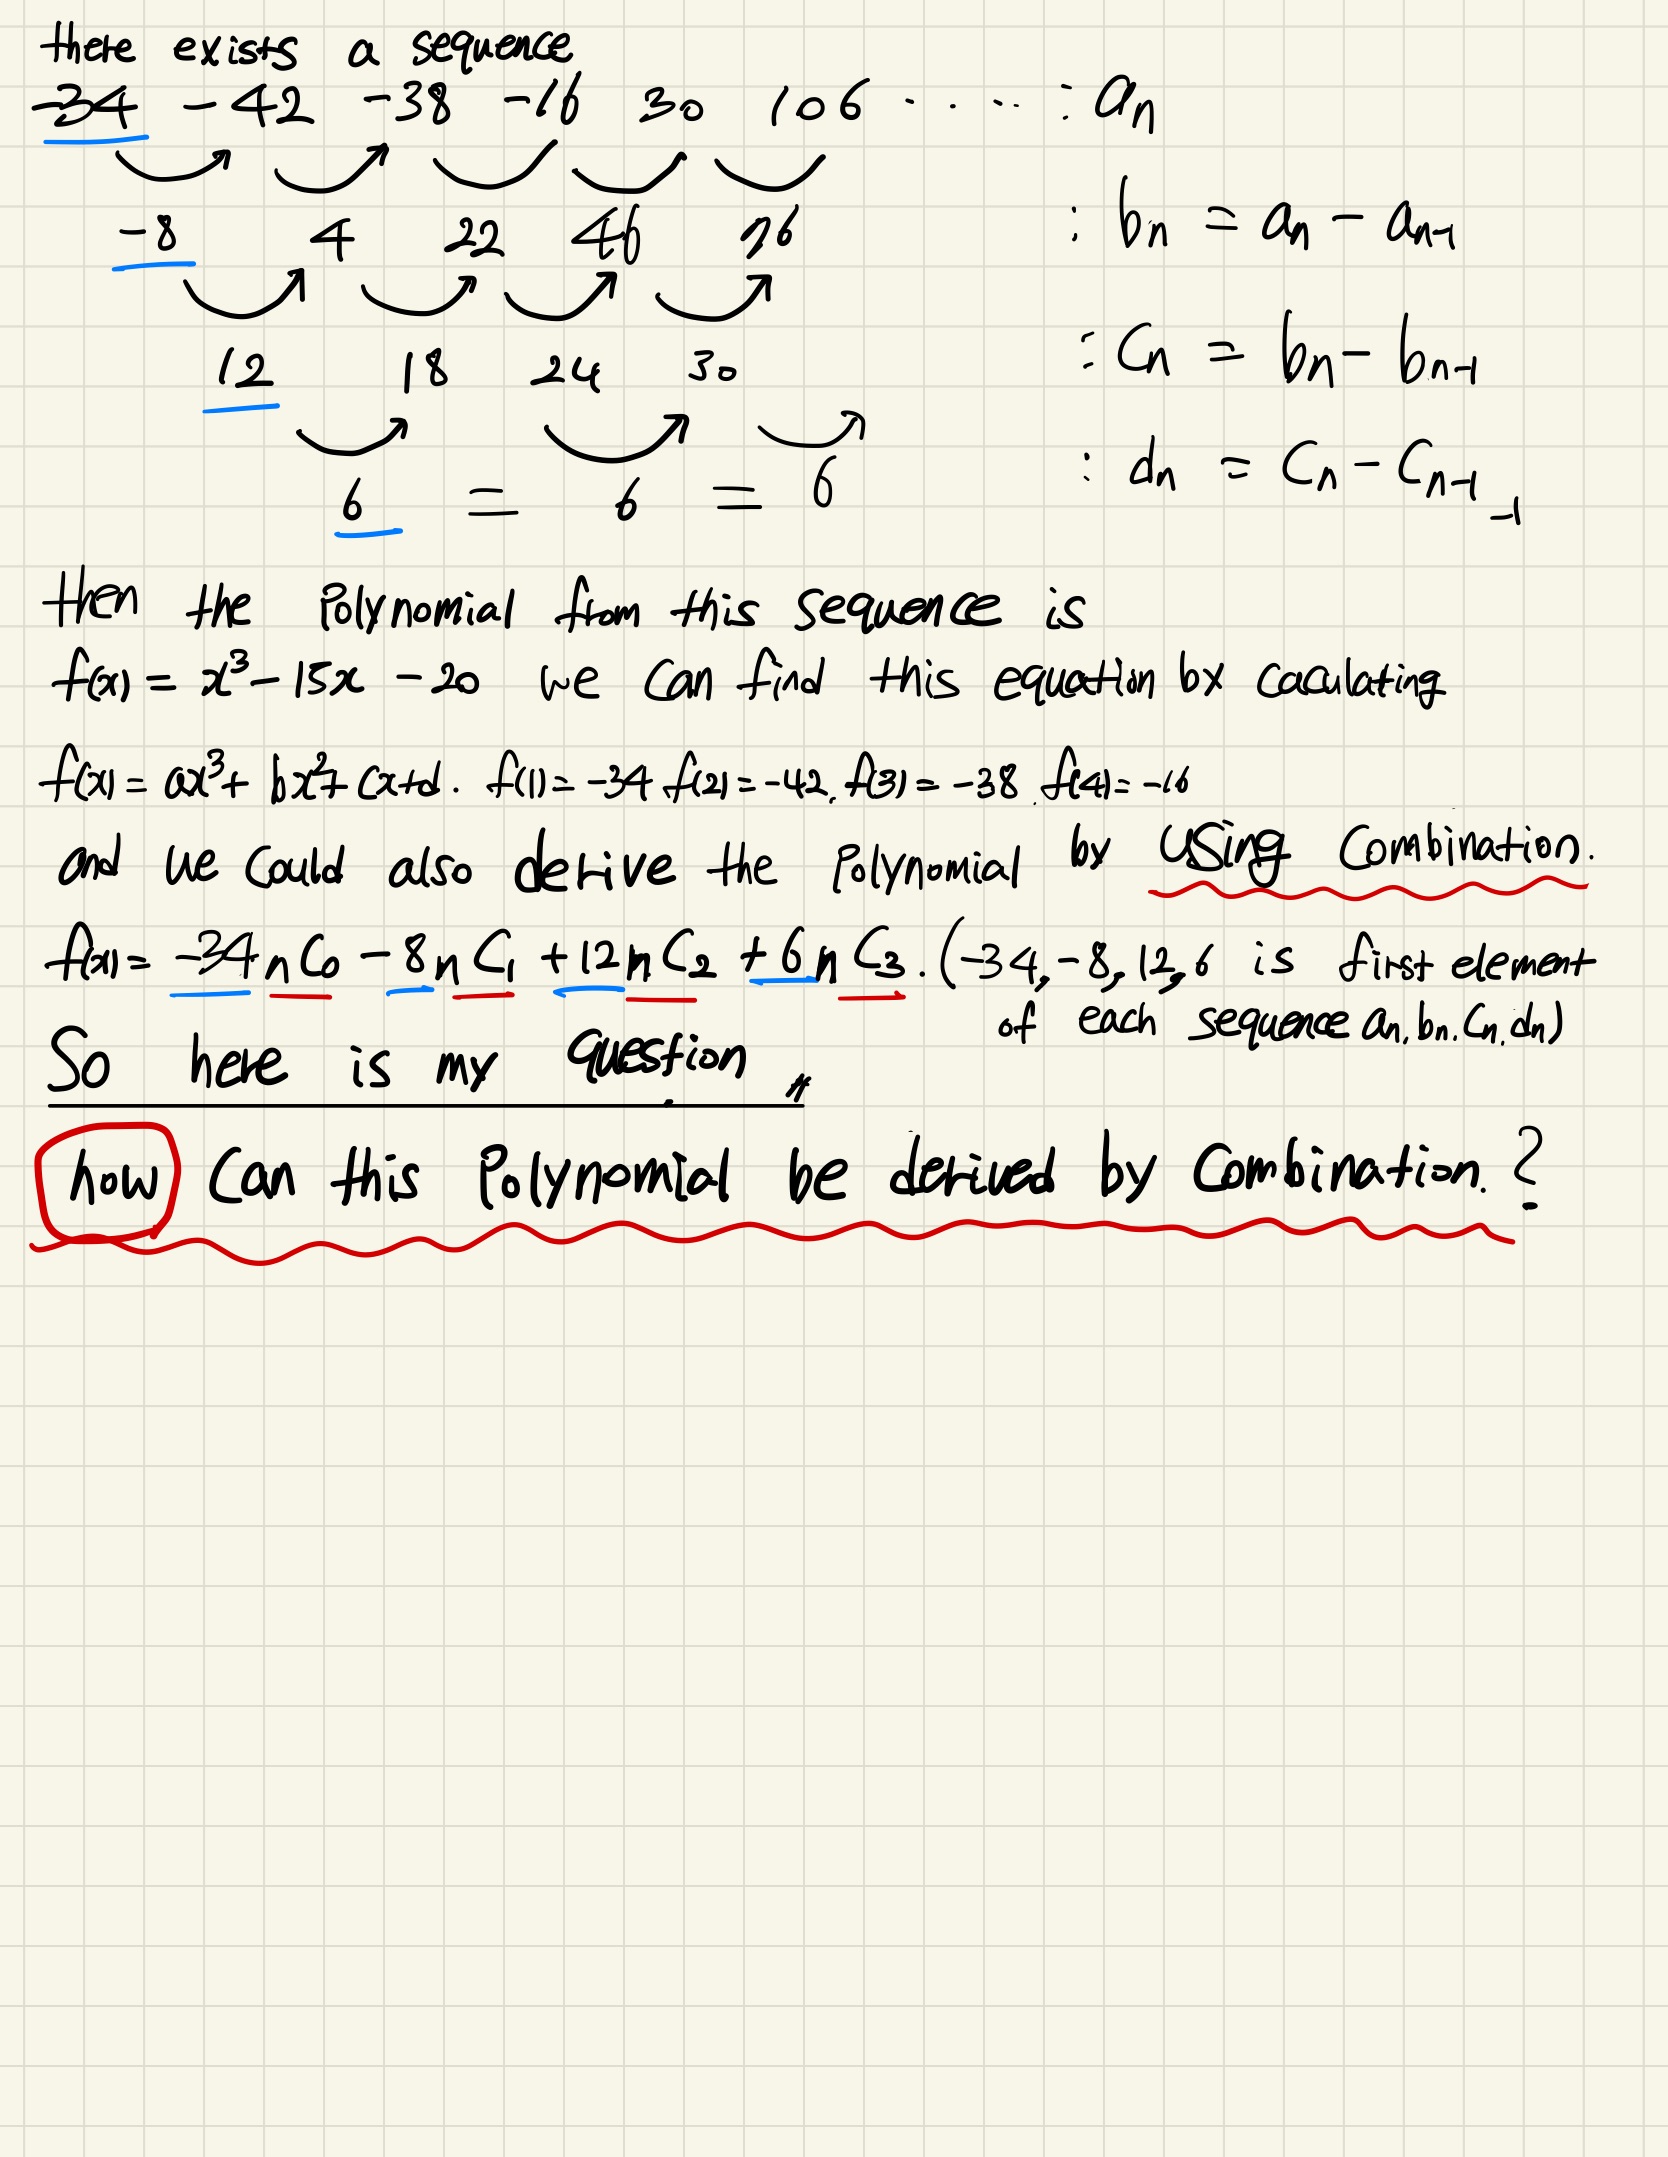 there exists a sequence
-34 -42 -38 -16 30 106 ..... : an
-8 4 22 46 76 : bn = an - an-1
12 18 24 30 : Cn = bn - bn-1
6 = 6 = 6 : dn = Cn - Cn-1 -1
then the Polynomial from this sequence is
f(x) = x³ - 15x - 20 we can find this equation by caculating
f(x) = ax³ + bx² + cx + d. f(1) = -34 f(2) = -42. f(3) = -38. f(4) = -16
and we could also derive the Polynomial by using Combination.
f(x) = -34 nC0 - 8 nC1 + 12 nC2 + 6 nC3. (-34, -8, 12, 6 is first element
of each sequence an. bn. Cn. dn)
So here is my question
how can this Polynomial be derived by Combination.?